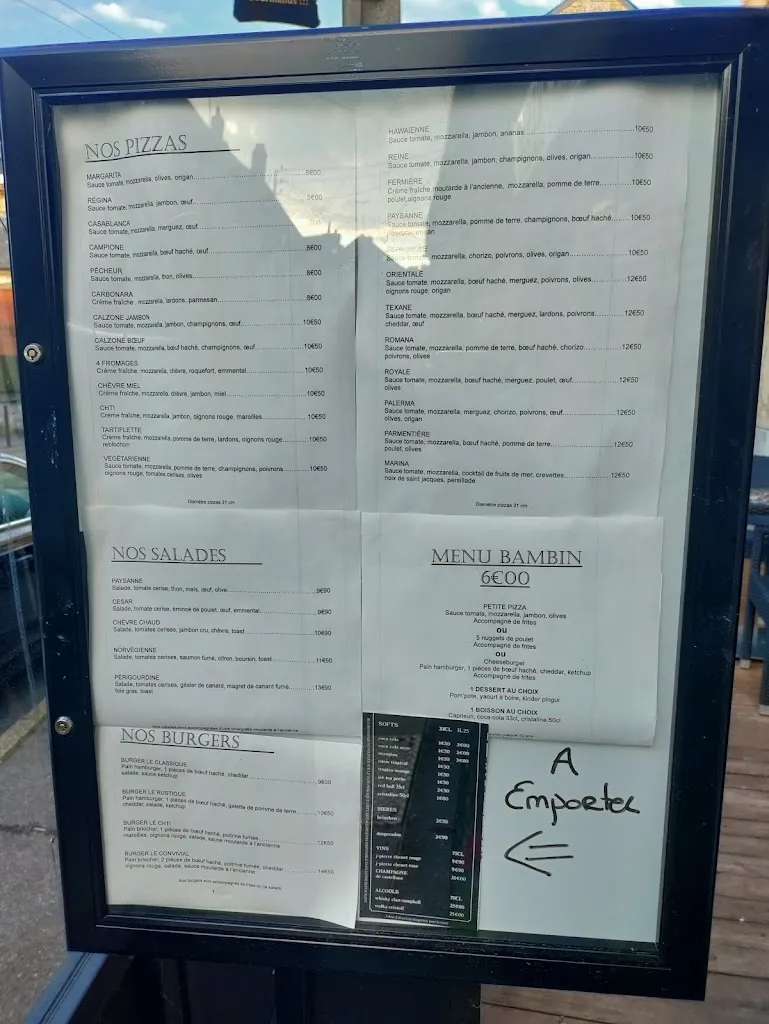 NOS PIZZAS
MARGARITA
Sauce tomate, mozzarella, olives, origan 8€00
RÉGINA
Sauce tomate, mozzarella, jambon, œuf 8€00
CASABLANCA
Sauce tomate, mozzarella, merguez, œuf
CAMPIONE
Sauce tomate, mozzarella, bœuf haché, œuf 8€00
PÊCHEUR
Sauce tomate, mozzarella, thon, olives 8€00
CARBONARA
Crème fraîche, mozzarella, lardons, parmesan 8€00
CALZONE JAMBON
Sauce tomate, mozzarella, jambon, champignons, œuf 10€50
CALZONE BŒUF
Sauce tomate, mozzarella, bœuf haché, champignons, œuf 10€50
4 FROMAGES
Crème fraîche, mozzarella, chèvre, roquefort, emmental 10€50
CHÈVRE MIEL
Crème fraîche, mozzarella, chèvre, jambon, miel 10€50
CHTI
Crème fraîche, mozzarella, jambon, oignons rouge, maroilles 10€50
TARTIFLETTE
Crème fraîche, mozzarella, pomme de terre, lardons, oignons rouge 10€50
reblochon
VEGÉTARIENNE
Sauce tomate, mozzarella, pomme de terre, champignons, poivrons 10€50
oignons rouge, tomates cerises, olives
Diamètre pizzas 31 cm
HAWAIENNE
Sauce tomate, mozzarella, jambon, ananas 10€50
REINE
Sauce tomate, mozzarella, jambon, champignons, olives, origan 10€50
FERMIÈRE
Crème fraîche, moutarde à l'ancienne, mozzarella, pomme de terre 10€50
poulet, oignons rouge
PAYSANNE
Sauce tomate, mozzarella, pomme de terre, champignons, bœuf haché 10€50
poivrons, origan
Sauce tomate, mozzarella, chorizo, poivrons, olives, origan 10€50
ORIENTALE
Sauce tomate, mozzarella, bœuf haché, merguez, poivrons, olives 12€50
oignons rouge, origan
TEXANE
Sauce tomate, mozzarella, bœuf haché, merguez, lardons, poivrons 12€50
cheddar, œuf
ROMANA
Sauce tomate, mozzarella, pomme de terre, bœuf haché, chorizo 12€50
poivrons, olives
ROYALE
Sauce tomate, mozzarella, bœuf haché, merguez, poulet, œuf 12€50
olives
PALERMA
Sauce tomate, mozzarella, merguez, chorizo, poivrons, œuf 12€50
olives, origan
PARMENTIÈRE
Sauce tomate, mozzarella, bœuf haché, pomme de terre 12€50
poulet, olives
MARINA
Sauce tomate, mozzarella, cocktail de fruits de mer, crevettes 12€50
noix de saint jacques, persillade
Diamètre pizzas 31 cm
NOS SALADES
PAYSANNE
Salade, tomate cerise, thon, maïs, œuf, olive 9€90
CESAR
Salade, tomate cerise, émincé de poulet, œuf, emmental 9€90
CHÈVRE CHAUD
Salade, tomates cerises, jambon cru, chèvre, toast 10€90
NORVÉGIENNE
Salade, tomates cerises, saumon fumé, citron, boursin, toast 11€90
PÉRIGOURDINE
Salade, tomates cerises, gésier de canard, magret de canard fumé 13€90
foie gras, toast
MENU BAMBIN
6€00
PETITE PIZZA
Sauce tomate, mozzarella, jambon, olives
Accompagné de frites
OU
5 nuggets de poulet
Accompagné de frites
OU
Cheeseburger
Pain hamburger, 1 pièces de bœuf haché, cheddar, ketchup
Accompagné de frites
1 DESSERT AU CHOIX
Pom'pote, yaourt à boire, kinder pingui
1 BOISSON AU CHOIX
Caprisun, coca-cola 33cl, cristaline 50cl
NOS BURGERS
BURGER LE CLASSIQUE
Pain hamburger, 1 pièces de bœuf haché, cheddar 9€00
salade, sauce ketchup
BURGER LE RUSTIQUE
Pain hamburger, 1 pièces de bœuf haché, galette de pomme de terre 10€50
cheddar, salade, ketchup
BURGER LE CHTI
Pain briocher, 1 pièces de bœuf haché, poitrine fumée 12€50
maroilles, oignons rouge, salade, sauce moutarde à l'ancienne
BURGER LE CONVIVIAL
Pain briocher, 2 pièces de bœuf haché, poitrine fumée, cheddar 14€50
oignons rouge, salade, sauce moutarde à l'ancienne
Nos burgers sont accompagnés de frites ou de salade
SOFTS 33CL 1L25
coca cola 1€50 3€00
coca cola zero 1€50 3€00
1€50 3€00
oasis tropical 1€50
1€50
ice tea peche 1€50
red bull 25cl 2€50
cristaline 50cl 1€00
BIERES
heineken 2€50
desperados 2€90
VINS 75CL
j-pierre chenet rouge 9€90
j-pierre chenet rose 9€90
CHAMPAGNE
de castellane 30€00
ALCOOLS 70CL
whisky clan campbell 25€00
25€00
A
Emporter